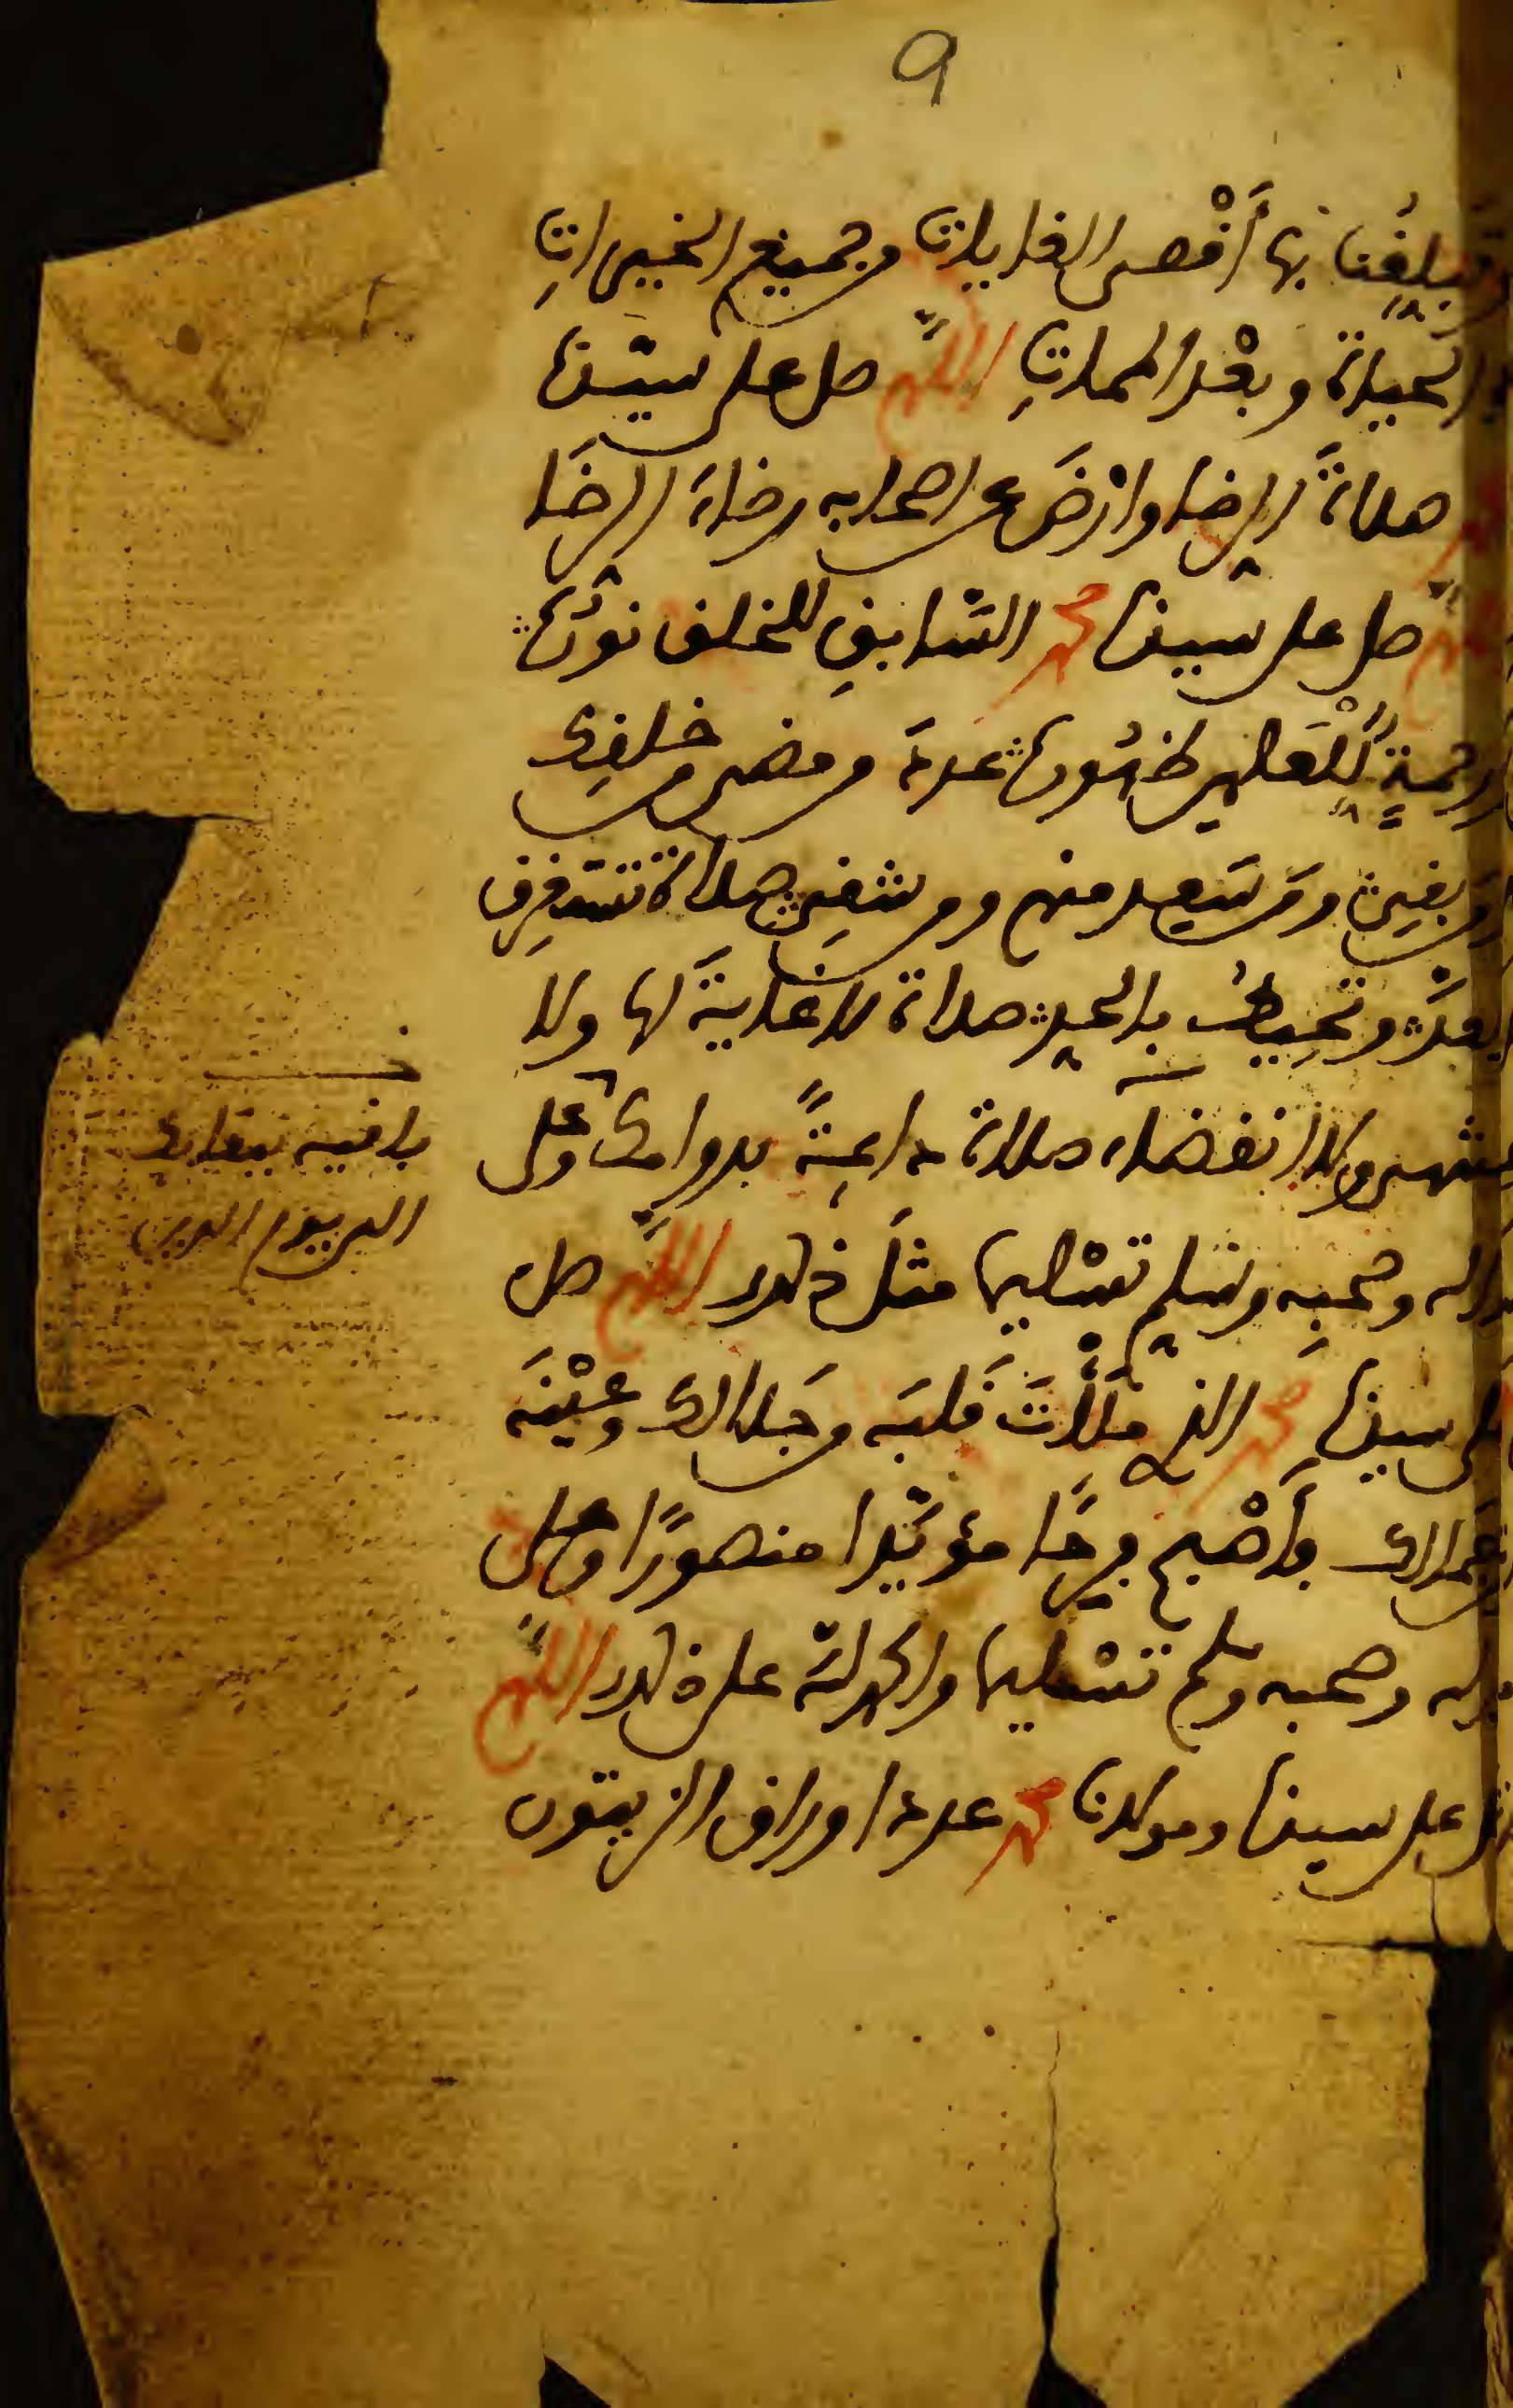 9
وتبلغنا بها أقصى الغايات من جميع الخيرات
الحياة وبعد الممات اللهم صل على سيدنا
صلاة الرضا وارض عن اصحابه رضاء الرضا
صل على سيدنا محمد السابق للخلق نوره
رحمة للعلمين ظهوره عدد من مضى من خلقك
ومن بقي ومن سعد منهم ومن شقي صلاة تستغرق
العد وتحيط بالحد صلاة لا غاية لها ولا
منتهى ولا انقضاء صلاة دائمة بدوامك وعلى
ءاله وصحبه وسلم تسليما مثل ذلك اللهم صل
على سيدنا محمد الذي ملأت قلبه من جلالك وعينه
من جمالك فأصبح فرحا مؤيدا منصورا وعلى
ءاله وصحبه وسلم تسليما والحمد لله على ذلك اللهم
صل على سيدنا ومولانا محمد عدد اوراق الزيتون
باقية ببقائك
الى يوم الدين